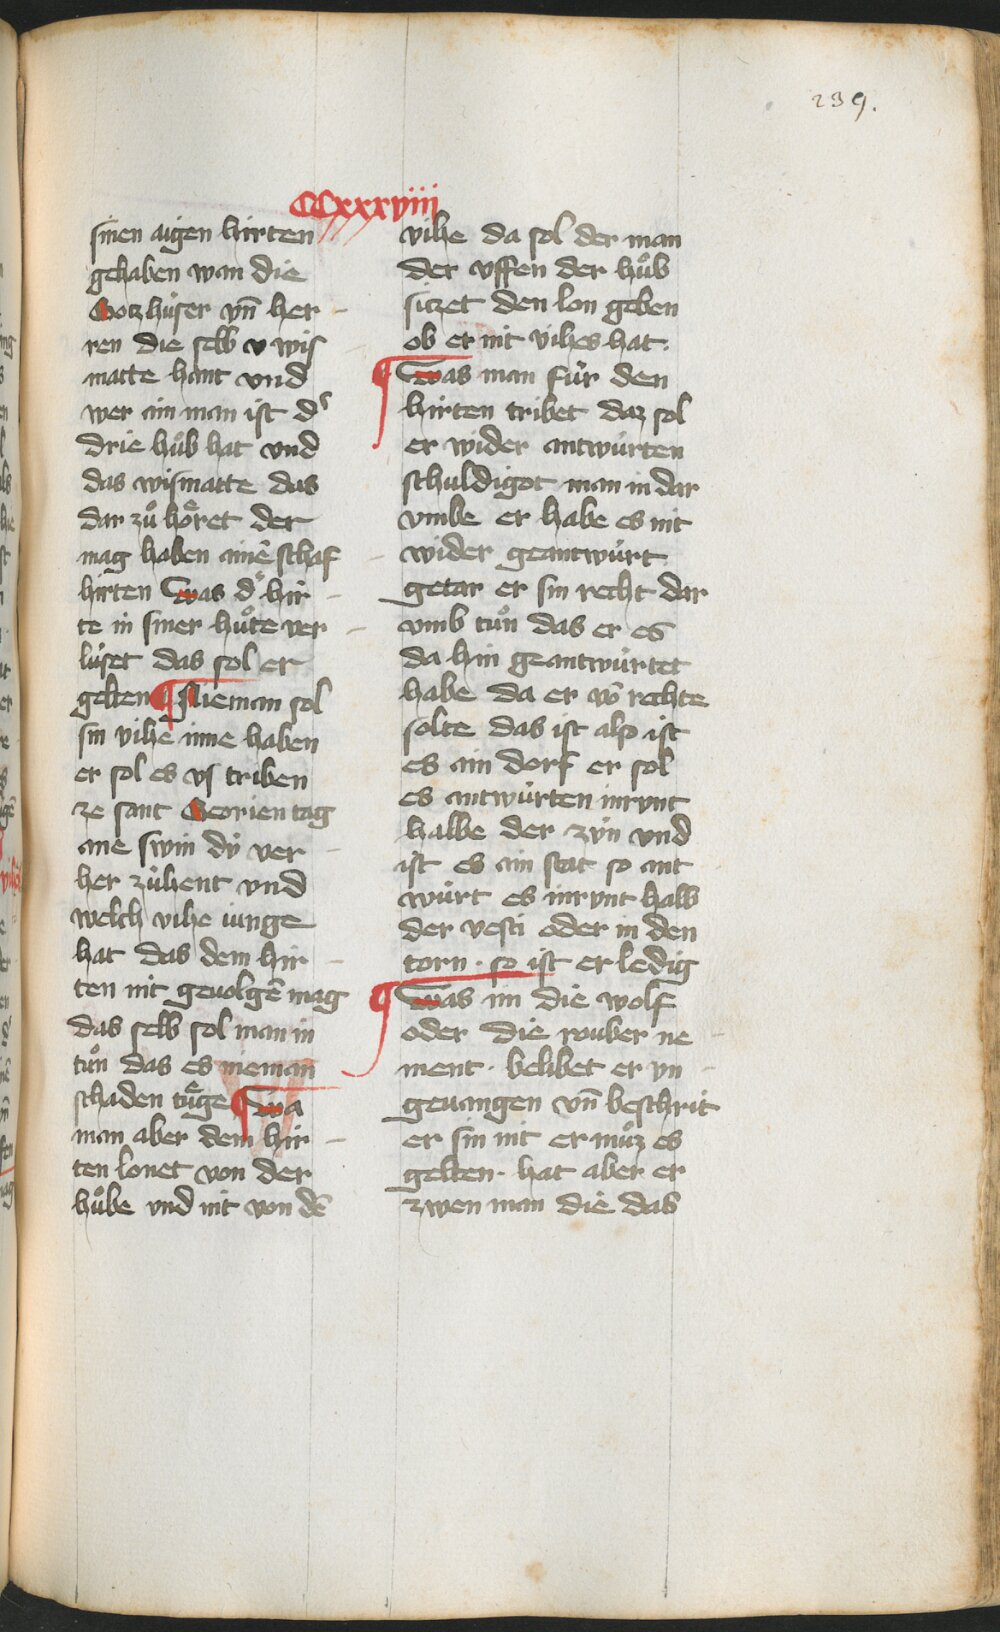 239.
CCxxxviiii
sinen aigen hirten
gehaben wan die
Gotzhúser vn̄ her
ren die selb v wis
matte hant vnd
wer ain man ist dˢ
drie hůb hat vnd
das wismatte das
dar zů hoͤret der
mag haben ainē schaf
hirten Was dˢ hir
te in siner hůte ver
lúset das sol er
gelten ¶ Nieman sol
sin vihe inne haben
er sol es vs triben
ze sant Georien tag
ane swin dÿ ver
her zúhent vnd
welch vihe iunge
hat das dem hir
ten nit geuolgē mag
das selb sol man in
tůn das es nieman
schaden tuͤge ¶ Wa
man aber dem hir
ten lonet von der
hůbe vnd nit von dē
vihe da sol der man
der vffen der hůb
sitzet den lon geben
ob er nit vihes hat.
¶ Was man fúr den
hirten tribet daz sol
er wider antwúrten
schuldigot man in dar
vmbe er habe es nit
wider geantwúrt
getar er sin recht dar
vmb tůn das er es
da hin geantwúrtet
habe da er vō rechte
solte das ist also ist
es ain dorf er sol
es antwúrten inrynt
halbe der zÿn vnd
ist es ain stat so ant
wúrt es inrynt halb
der vesti oder in den
torn · so ist er ledig
¶ Was im die wolf
oder die rouber ne
ment · belibet er vn
geuangen vn̄ beschrit
er sin nit er můz es
gelten · hat aber er
zwen man die das